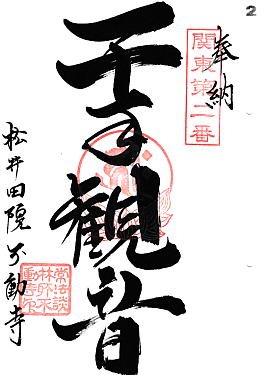 2
奉納
関東第二番
千手観音
松井田院 不動寺
常法談
林所不
動寺印